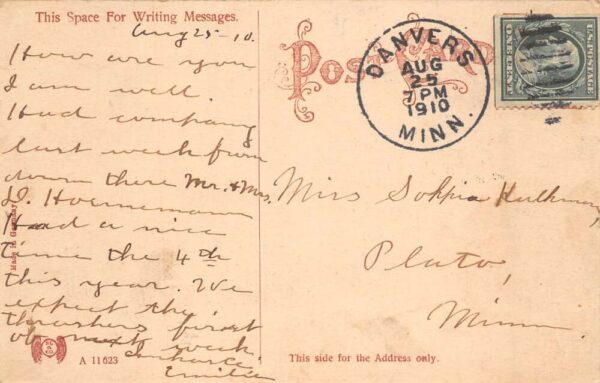 This Space For Writing Messages.
Aug 25 - 10.
How are you
I am well.
Had company
last week from
down there Mr. & Mrs.
Had a nice
time the 4th
this year. We
expect the
thrashers first
of next week.
Emilie
Made in Germany
A 11623
Post Card
DANVERS
AUG
25
7 PM
1910
MINN.
U.S. POSTAGE
ONE CENT
Miss Sophia
Plato,
Minn.
This side for the Address only.